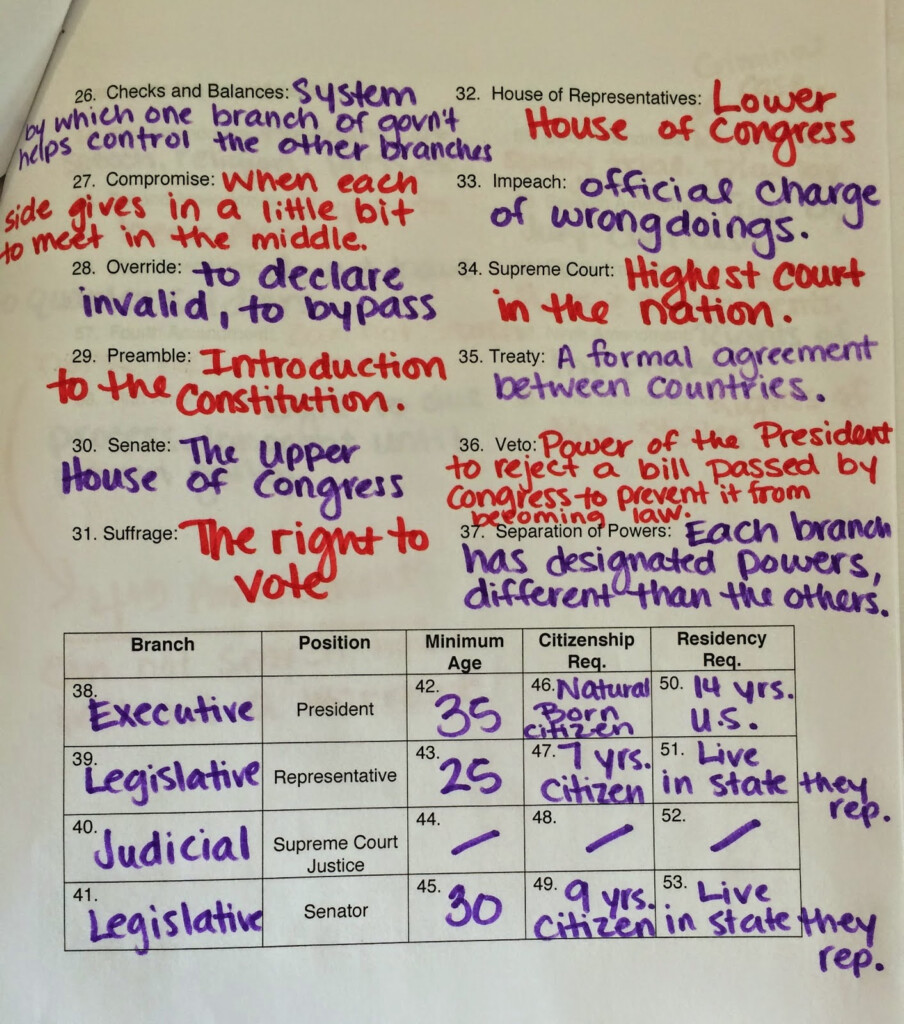 26. Checks and Balances: System
by which one branch of govn't
helps control the other branches
27. Compromise: when each
side gives in a little bit
to meet in the middle.
28. Override: to declare
invalid, to bypass
29. Preamble: Introduction
to the Constitution.
30. Senate: The Upper
House of Congress
31. Suffrage: The right to
vote
32. House of Representatives: Lower
House of Congress
33. Impeach: official charge
of wrongdoings.
34. Supreme Court: Highest court
in the nation.
35. Treaty: A formal agreement
between countries.
36. Veto: Power of the President
to reject a bill passed by
Congress-to prevent it from
becoming law.
37. Separation of Powers: Each branch
has designated powers,
different than the others.
Branch Position Minimum Age Citizenship Req. Residency Req.
38. Executive President 42. 35 46. Natural Born citizen 50. 14 yrs. U.S.
39. Legislative Representative 43. 25 47. 7 yrs. Citizen 51. Live in state they rep.
40. Judicial Supreme Court Justice 44. — 48. — 52. —
41. Legislative Senator 45. 30 49. 9 yrs. Citizen 53. Live in state they rep.